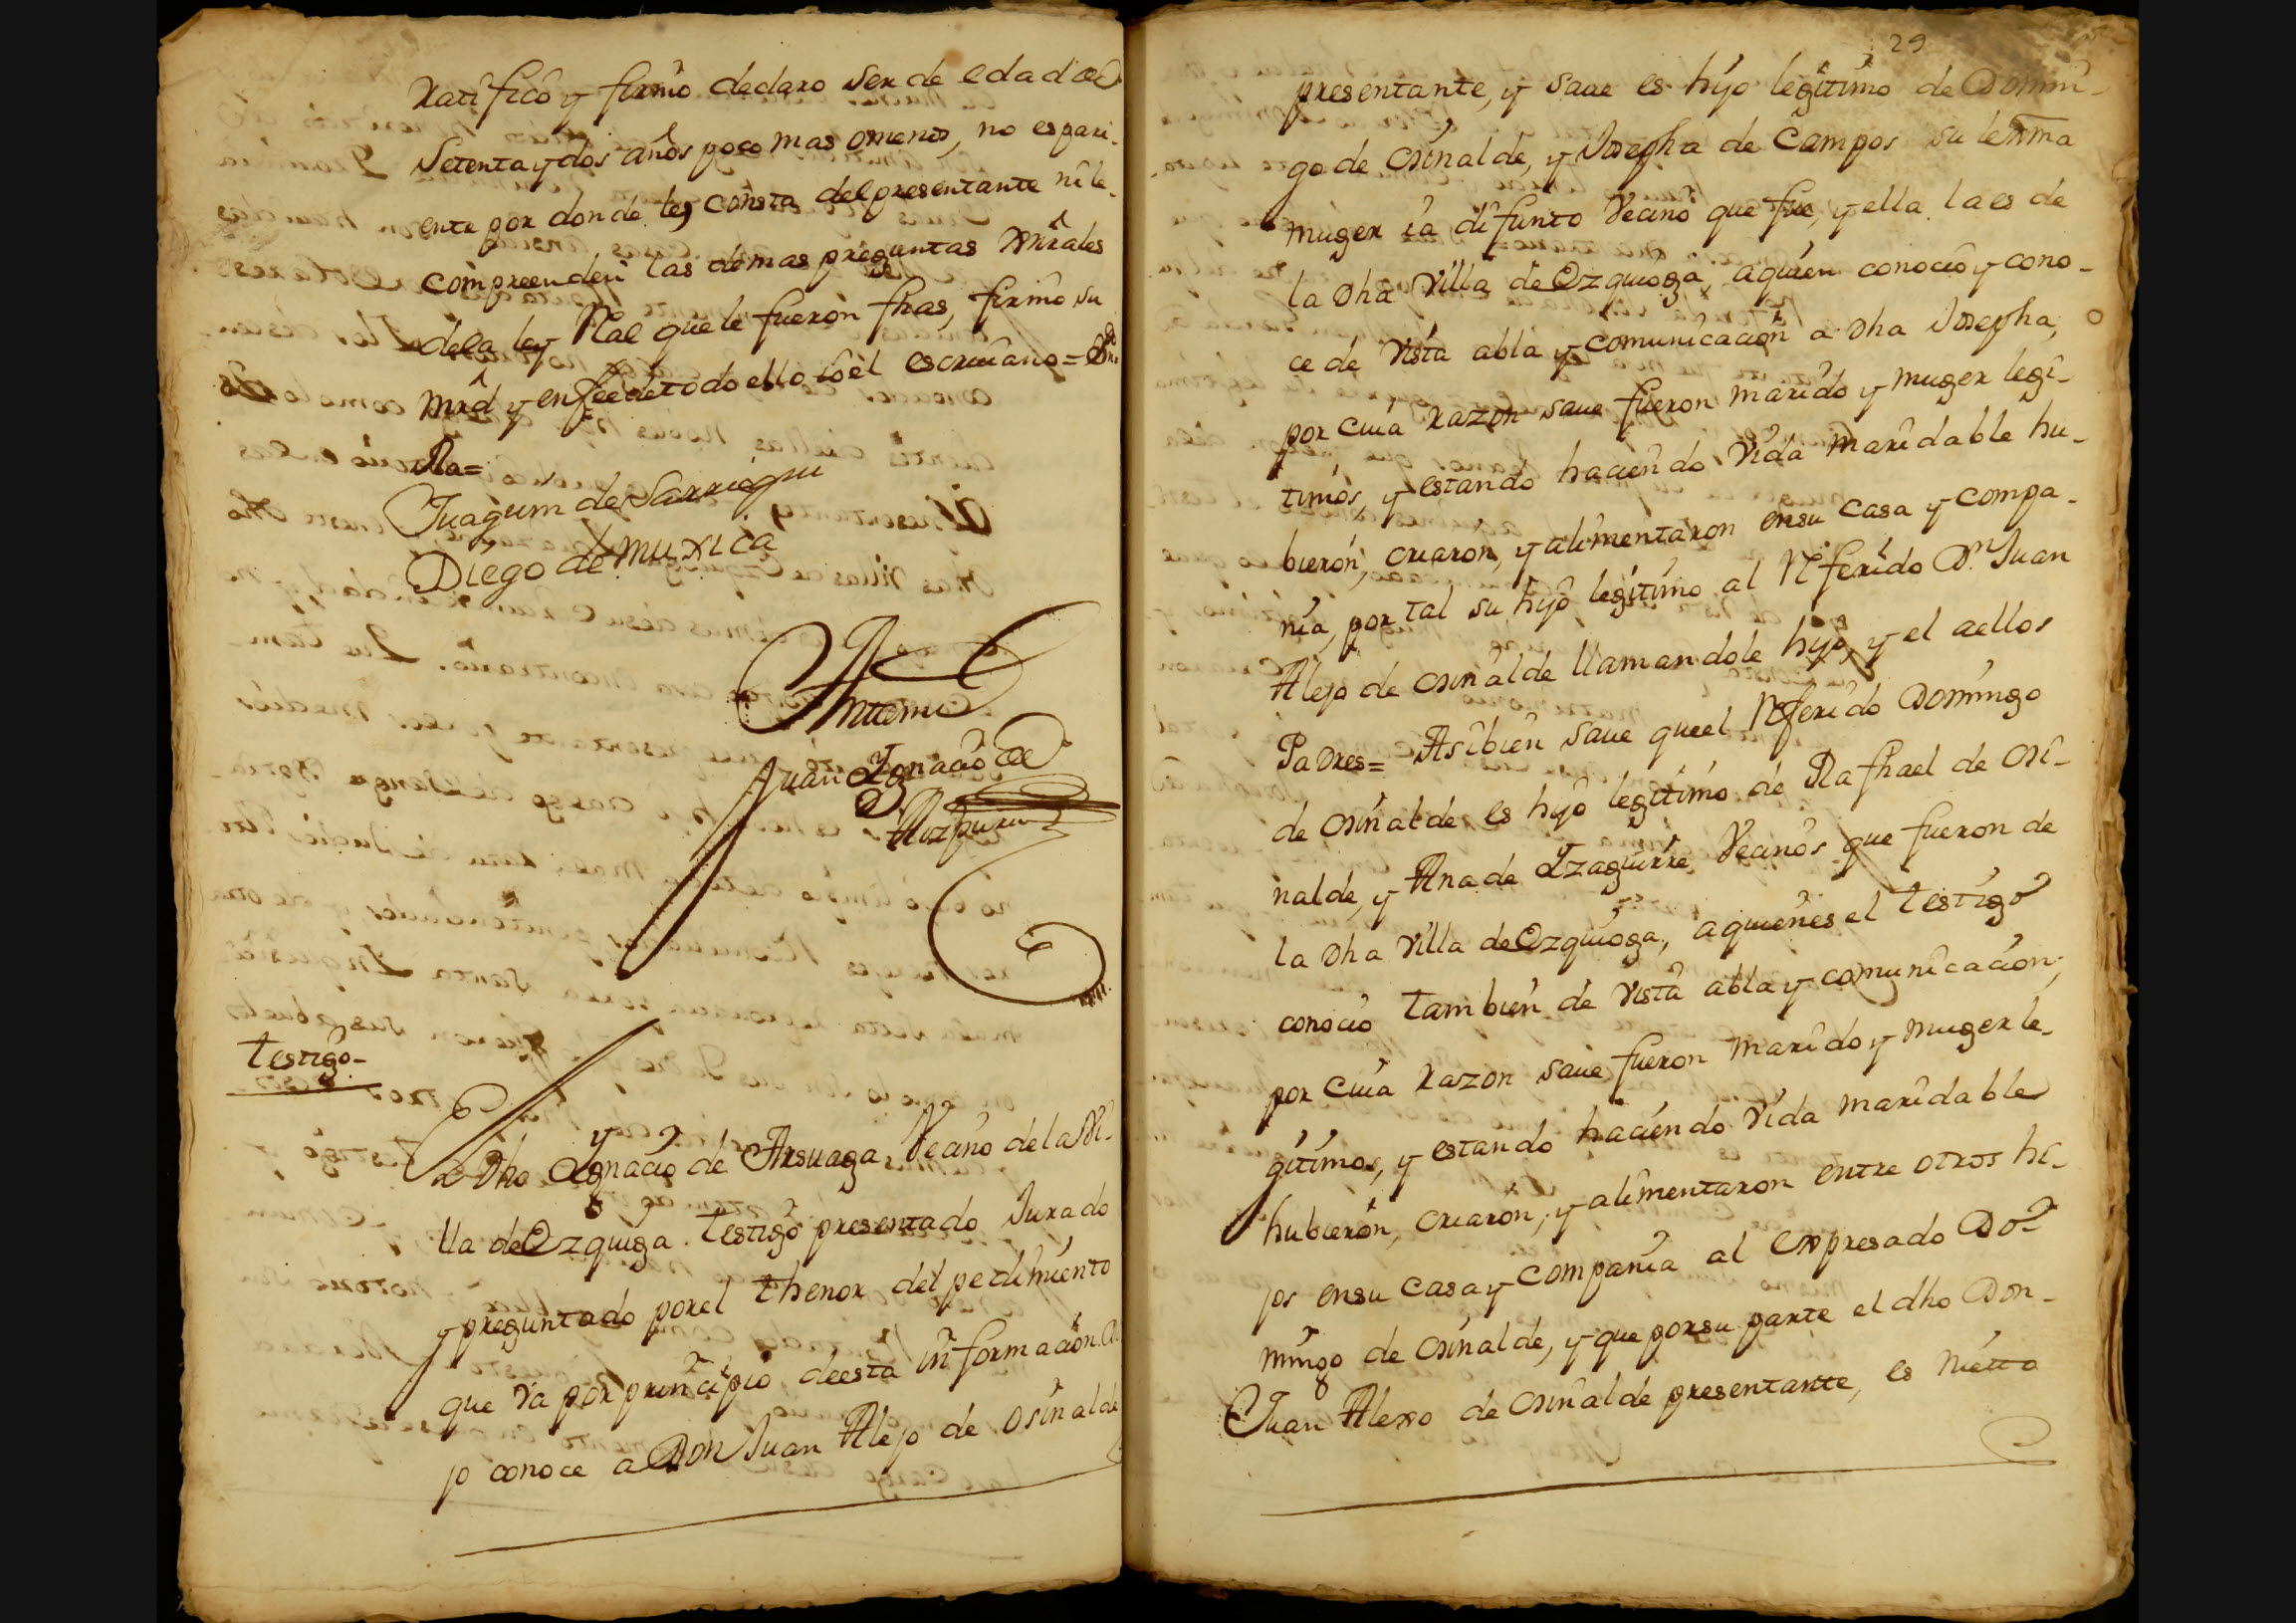 Ratifico y firmo declaro ser de edad de
Setenta y dos años poco mas omenos, no es pari-
ente por donde les consta del presentante ni le
compreenden las demas preguntas Xnrales
dela ley Rl que le fueron fhas, firmo su
mrd y enfee detodo ello io el escriuano =
Juaquin de Sarriegui
Diego de Muxica
Antemi
Juan Ygnacio de
Aizpuru
testigo-
Dho Ygnacio de Arsuaga, Vecino de la Vi-
lla de Ozquiga testigo presentado Jurado
y preguntado porel thenor del pedimiento
que va por principio deesta informacion
jo conoce a Don Juan Alejo de Osinalde
29
presentante, y saue es hijo legitimo de Domin-
go de Osinalde, y Josepha de Campos su lexma
muger ia difunto Vecino que fue, y ella la es de
la Dha Villa de Ozquioga, aquien conocio y cono-
ce de vista abla y comunicacion a Dha Josepha,
por cuia razon saue fueron marido y muger legi-
timos, y estando haciendo vida maridable hu-
bieron, criaron, y alimentaron ensu casa y compa-
nia, por tal su hijo legitimo al Referido Dn. Juan
Alejo de Osinalde llamandole hijo, y el aellos
Padres= Asibien saue queel Referido Domingo
de Osinalde es hijo legitimo de Rafhael de Osi-
nalde, y Ana de Yzaguirre Vecinos que fueron de
la Dha Villa de Ozquioga, aquienes el testigo
conocio tambien de vista abla y comunicacion,
por cuia razon saue fueron marido y muger le-
gitimos, y estando haciendo vida maridable
hubieron, criaron, y alimentaron entre otros hi-
jos ensu casa y compania al expresado Do-
mingo de Osinalde, y que porsu parte el dho Don-
Juan Alexo de Osinalde presentante, es nietto